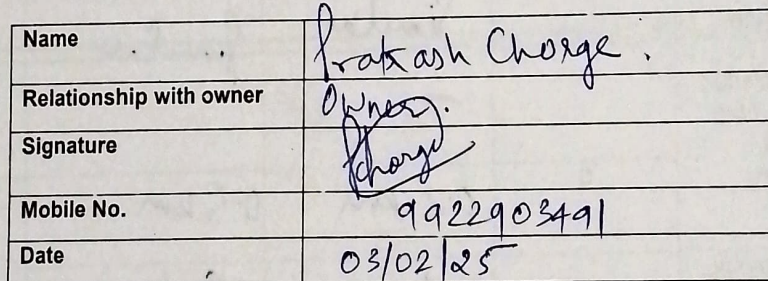 Name Prakash Chorge.
Relationship with owner Owner.
Signature PChorge
Mobile No. 9922903491
Date 03/02/25